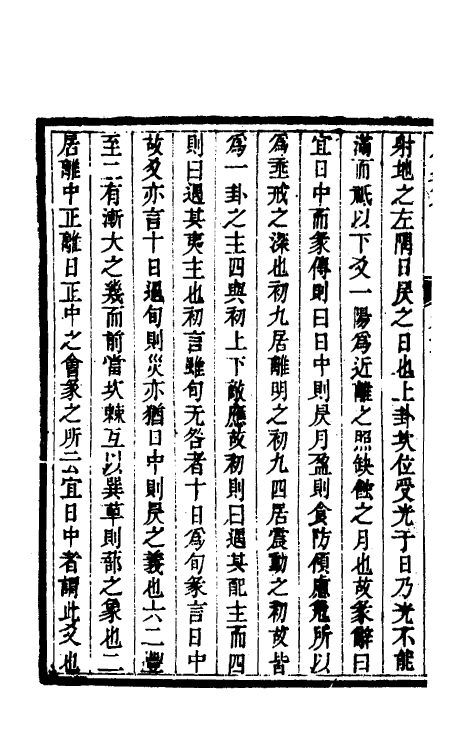 射地之左隅日昃之日也上卦坎位受光于日乃光不能
滿而虧以下爻一陽爲近離之照缺蝕之月也故彖辭曰
宜日中而彖傳則曰日中則昃月盈則食防傾慮危所以
爲垂戒之深也初九居離明之初九四居震動之初故皆
爲一卦之主四與初上下敵應故初則曰遇其配主而四
則曰遇其夷主也初言雖旬无咎者十日爲旬彖言日中
故爻亦言十日過旬則災亦猶日中則昃之義也六二豐
至二有漸大之幾而前當坎棘互以巽草則蔀之象也二
居離中正離日正中之會彖之所云宜日中者謂此爻也